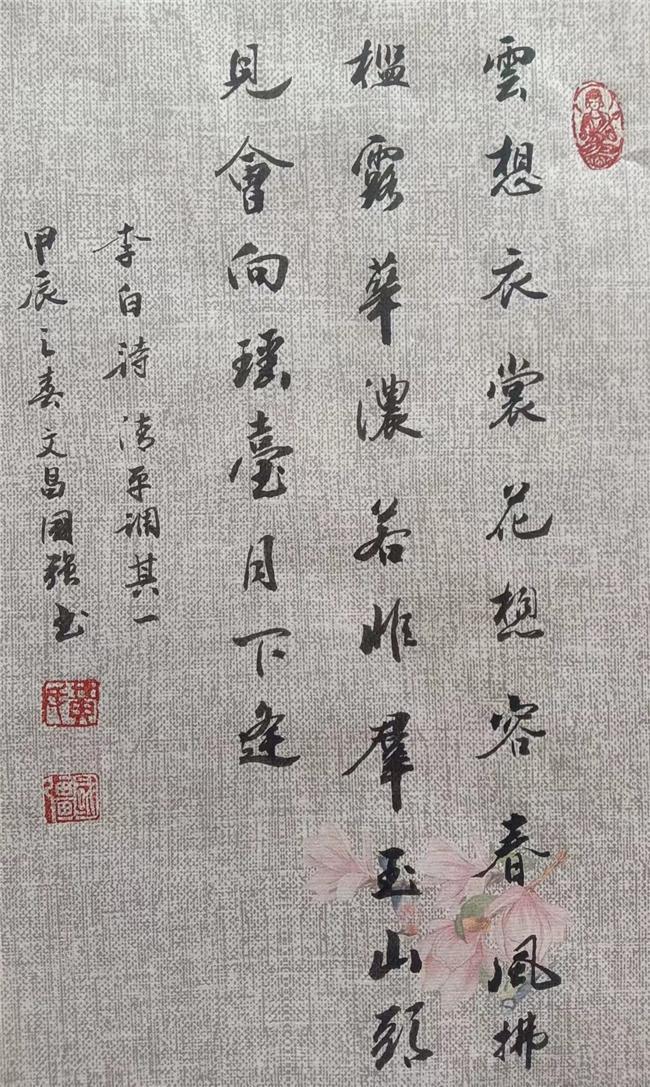 雲想衣裳花想容春風拂
檻露華濃若非群玉山頭
見會向瑤臺月下逢
李白詩清平调其一
甲辰之春文昌國強书